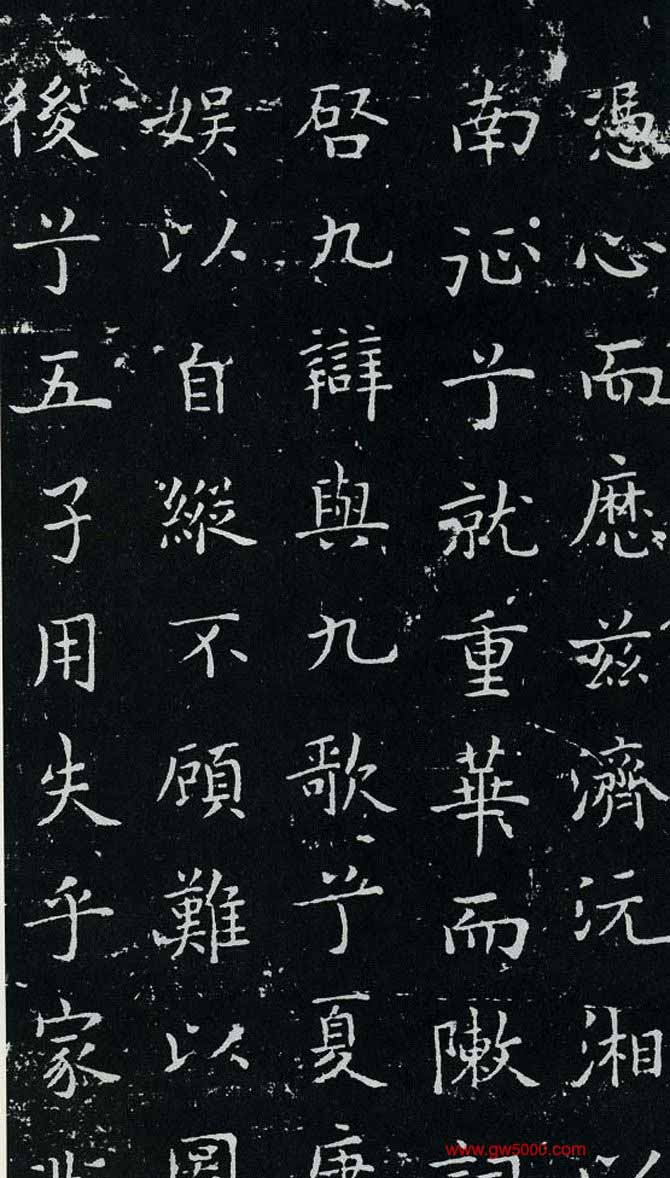 憑心而歷茲濟沅湘以
南征兮就重華而敶詞
啓九辯與九歌兮夏康
娛以自縱不顧難以圖
後兮五子用失乎家
www.gw5000.com